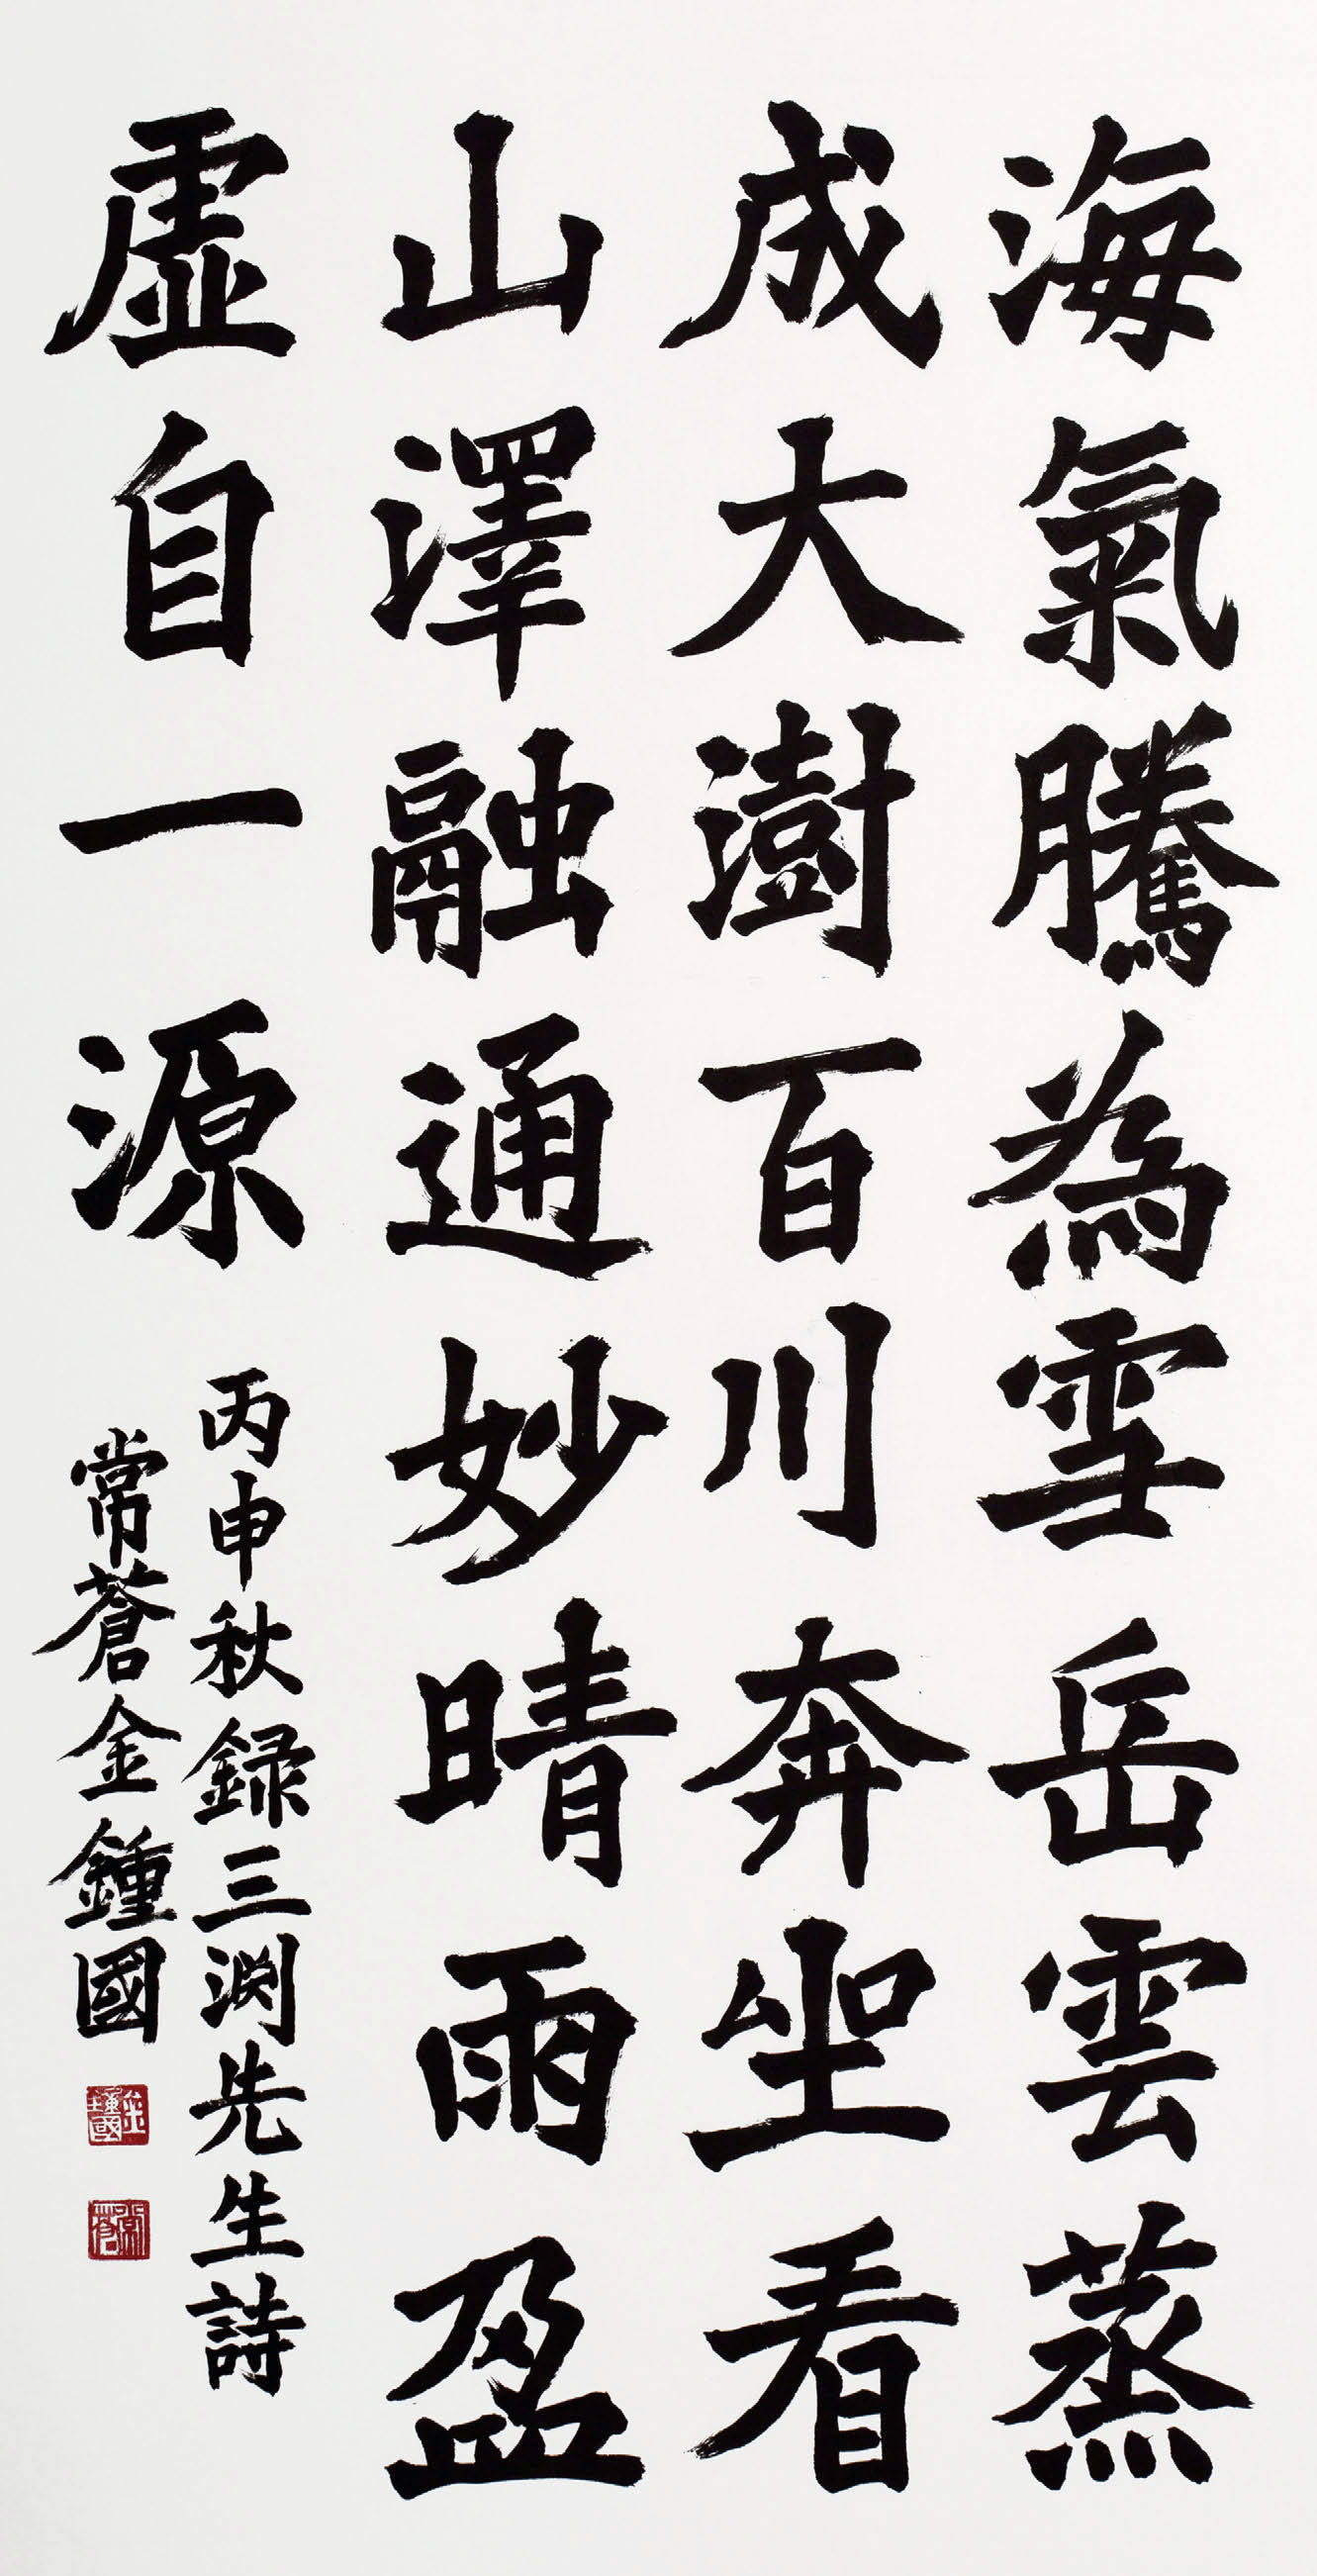 海氣騰為雪岳雲蒸
成大澍百川奔坐看
山澤融通妙晴雨盈
虛自一源
丙申秋録三淵先生詩
常蒼金鍾國
金鍾國
常蒼